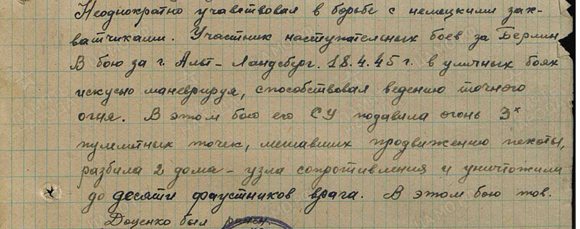 Неоднократно учавствовал в борьбе с немецкими зах-
ватчиками. Участник наступательных боев за Берлин
В бою за г. Альт-Ландсберг. 18.4.45 г. в уличных боях
искусно маневрируя, способствовал ведению точного
огня. В этом бою его СУ подавила огонь 3х
пулеметных точек, мешавших продвижению пехоты,
разбила 2 дома - узла сопротивления и уничтожила
до десяти фаустников врага. В этом бою тов.
Доценко был ранен.